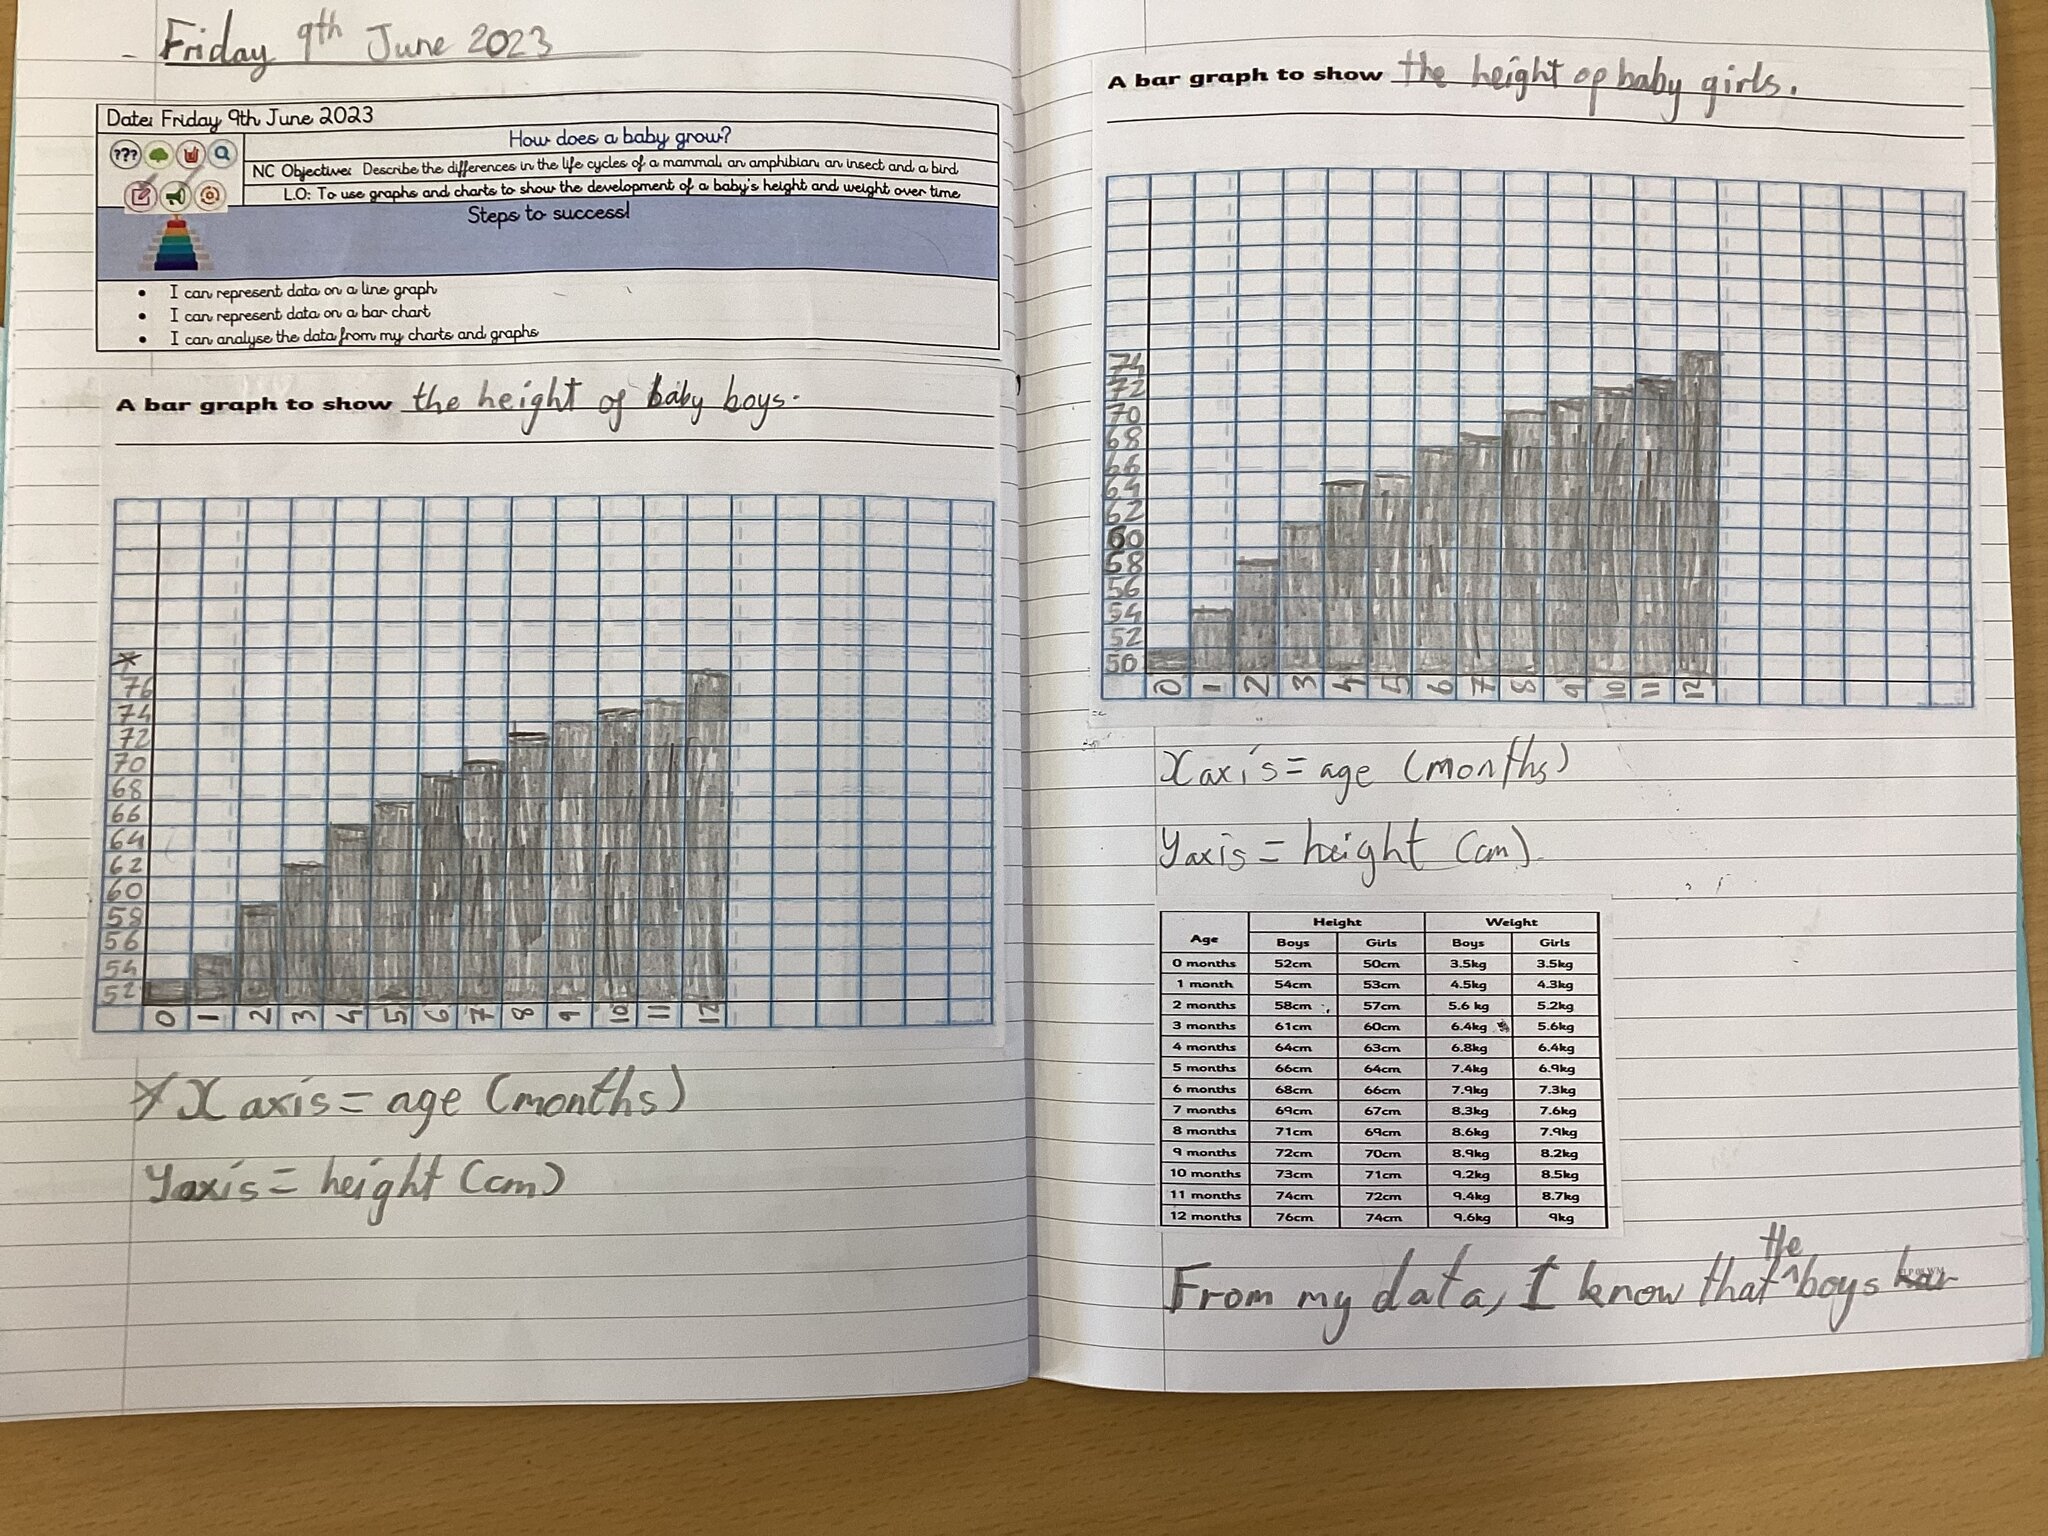 Friday 9th June 2023
Date: Friday 9th June 2023
How does a baby grow?
???
NC Objective: Describe the differences in the life cycles of a mammal, an amphibian, an insect and a bird
L.O: To use graphs and charts to show the development of a baby's height and weight over time
Steps to success!
• I can represent data on a line graph
• I can represent data on a bar chart
• I can analyse the data from my charts and graphs
A bar graph to show the height of baby boys.
*
76
74
72
70
68
66
64
62
60
58
56
54
52
0 1 2 3 4 5 6 7 8 9 10 11 12
* X axis = age (months)
Y axis = height (cm)
A bar graph to show the height of baby girls.
74
72
70
68
66
64
62
60
58
56
54
52
50
0 1 2 3 4 5 6 7 8 9 10 11 12
X axis = age (months)
Y axis = height (cm).
Age Height Weight
Boys Girls Boys Girls
0 months 52cm 50cm 3.5kg 3.5kg
1 month 54cm 53cm 4.5kg 4.3kg
2 months 58cm 57cm 5.6 kg 5.2kg
3 months 61cm 60cm 6.4kg 5.6kg
4 months 64cm 63cm 6.8kg 6.4kg
5 months 66cm 64cm 7.4kg 6.9kg
6 months 68cm 66cm 7.9kg 7.3kg
7 months 69cm 67cm 8.3kg 7.6kg
8 months 71cm 69cm 8.6kg 7.9kg
9 months 72cm 70cm 8.9kg 8.2kg
10 months 73cm 71cm 9.2kg 8.5kg
11 months 74cm 72cm 9.4kg 8.7kg
12 months 76cm 74cm 9.6kg 9kg
From my data, I know that the boys